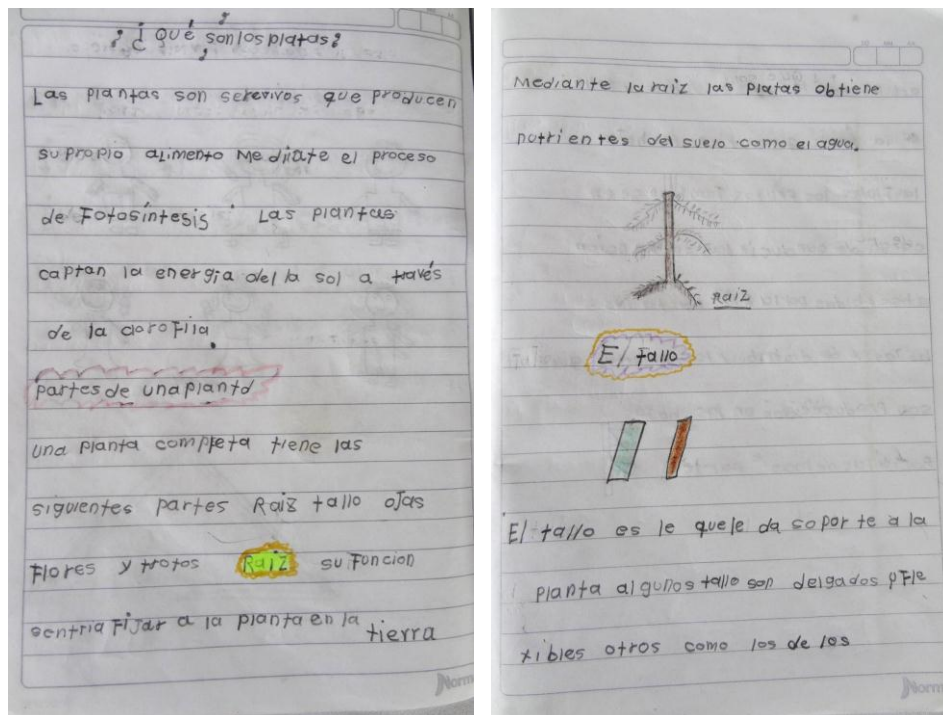 ¿ ¿ Qué son los platas?
Las plantas son serevivos que producen
su propio alimento Mediiate el proceso
de Fotosíntesis. Las plantas
captan la energia del la sol a través
de la clorofila.
partes de una planta
una planta completa tiene las
siguientes partes Raiz tallo ojas
Flores y trotos Raiz su Funcion
sentria Fijar a la planta en la tierra
Norm
Mediante la raiz las platas obtiene
nutrientes del suelo como el agua.
RaiZ
El tallo
El tallo es le quele da soporte a la
planta algunos tallo son delgados y Fle
xibles otros como los de los
Norm